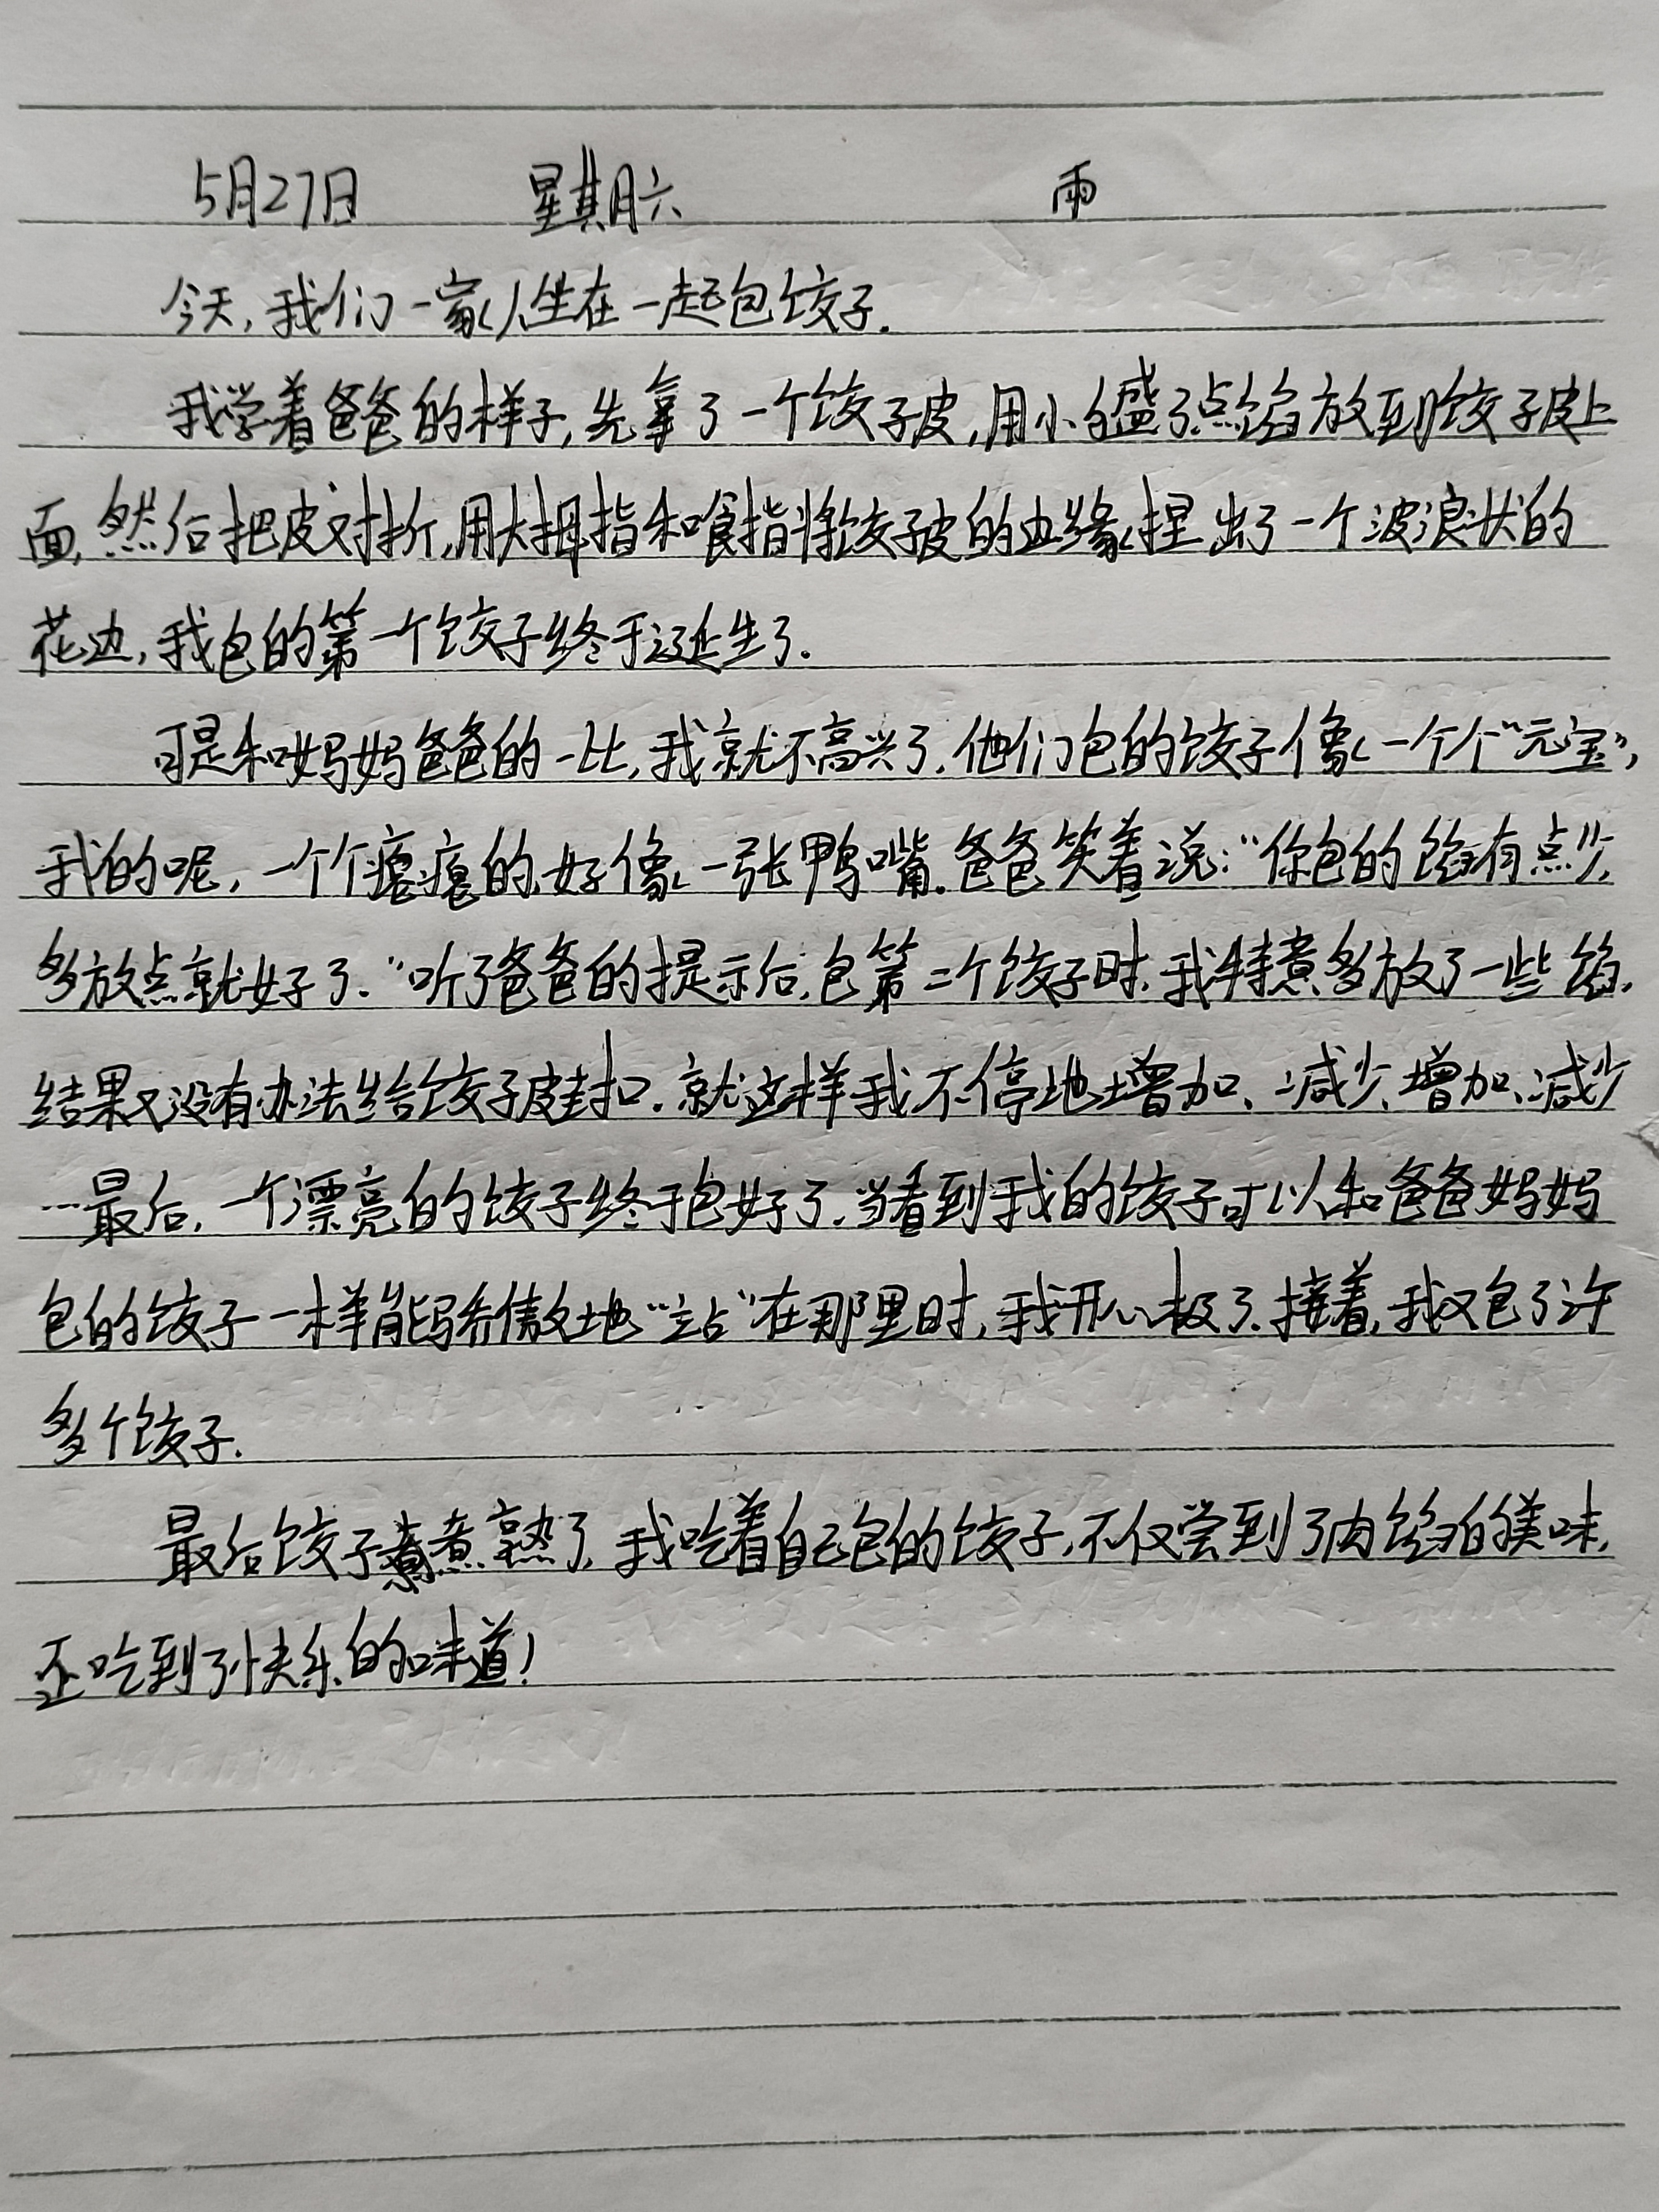 5月27日 星期六 雨
今天，我们一家人坐在一起包饺子．
我学着爸爸的样子，先拿了一个饺子皮，用小勺盛了点馅放到饺子皮上
面，然后把皮对折，用大拇指和食指将饺子皮的边缘捏出了一个波浪状的
花边，我包的第一个饺子终于诞生了．
可是和妈妈爸爸的一比，我就不高兴了．他们包的饺子像一个个“元宝”，
我的呢，一个个瘪瘪的，好像一张鸭嘴．爸爸笑着说：“你包的馅有点少，
多放点就好了．”听了爸爸的提示后，包第二个饺子时，我特意多放了一些馅，
结果又没有办法给饺子皮封口．就这样我不停地增加、减少、增加、减少
…最后，一个漂亮的饺子终于包好了．当看到我的饺子可以和爸爸妈妈
包的饺子一样能骄傲地“站”在那里时，我开心极了．接着，我又包了许
多个饺子．
最后饺子煮熟了，我吃着自己包的饺子，不仅尝到了肉馅的美味，
还吃到了快乐的味道！